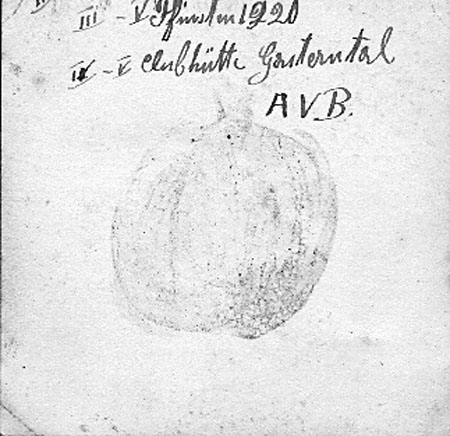 III - V Pfinsten 1920
IV - V Clubhütte Gasterntal
A V B.